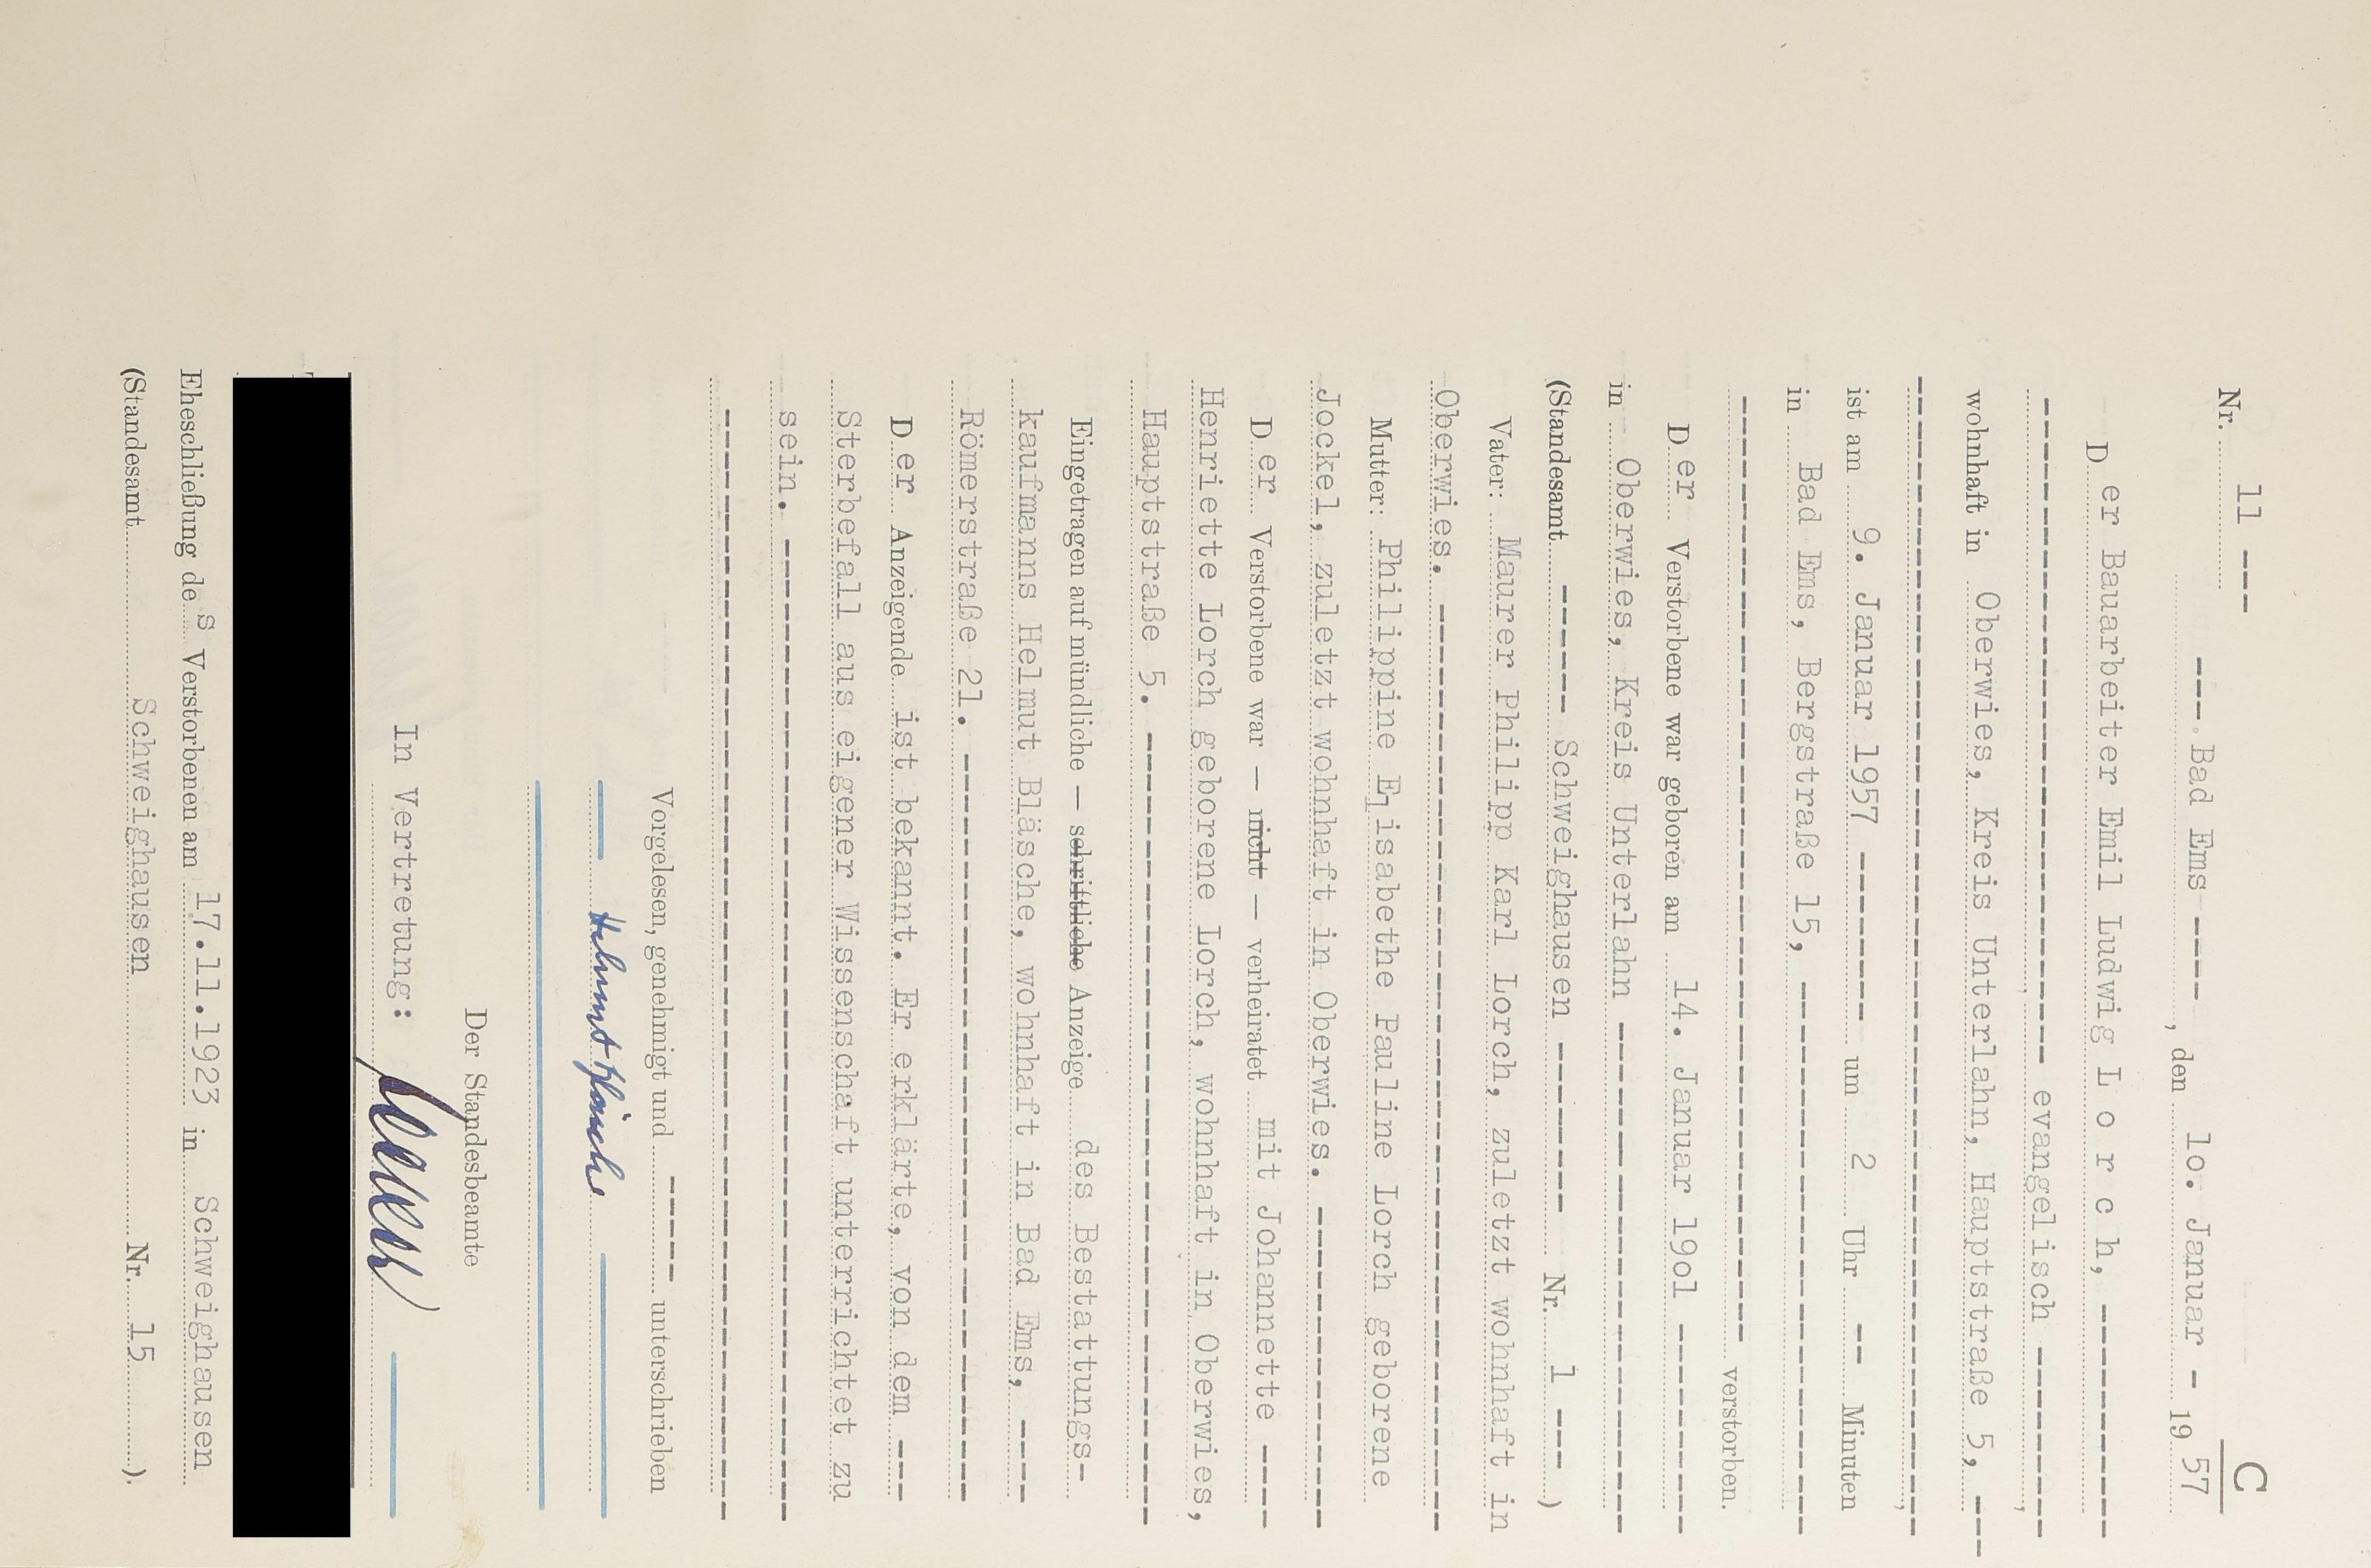 C
Nr. 11 ---
--- Bad Ems ----, den 10. Januar - 1957
Der Bauarbeiter Emil Ludwig L o r c h, ----------
---------------------------- evangelisch ----------,
wohnhaft in Oberwies, Kreis Unterlahn, Hauptstraße 5, ---
--------------------------------------------------,
ist am 9. Januar 1957 -------- um 2 Uhr -- Minuten
in Bad Ems, Bergstraße 15, ------------------------
---------------------------------------- verstorben.
Der Verstorbene war geboren am 14. Januar 19ol ---------
in Oberwies, Kreis Unterlahn ----------------------
(Standesamt ------ Schweighausen -------- Nr. 1 ---)
Vater: Maurer Philipp Karl Lorch, zuletzt wohnhaft in
Oberwies. ----------------------------------------
Mutter: Philippine Elisabethe Pauline Lorch geborene
Jockel, zuletzt wohnhaft in Oberwies. --------------
Der Verstorbene war — nicht — verheiratet mit Johannette ----
Henriette Lorch geborene Lorch, wohnhaft in Oberwies,
Hauptstraße 5. -----------------------------------
Eingetragen auf mündliche — schriftliche Anzeige des Bestattungs-
kaufmanns Helmut Bläsche, wohnhaft in Bad Ems, ----
Römerstraße 21. ----------------------------------
Der Anzeigende ist bekannt. Er erklärte, von dem ---
Sterbefall aus eigener Wissenschaft unterrichtet zu
sein. --------------------------------------------
--------------------------------------------------
Vorgelesen, genehmigt und ----- unterschrieben
Helmut Bläsche
Der Standesbeamte
In Vertretung:
Eheschließung des Verstorbenen am 17.11.1923 in Schweighausen
(Standesamt Schweighausen Nr. 15).